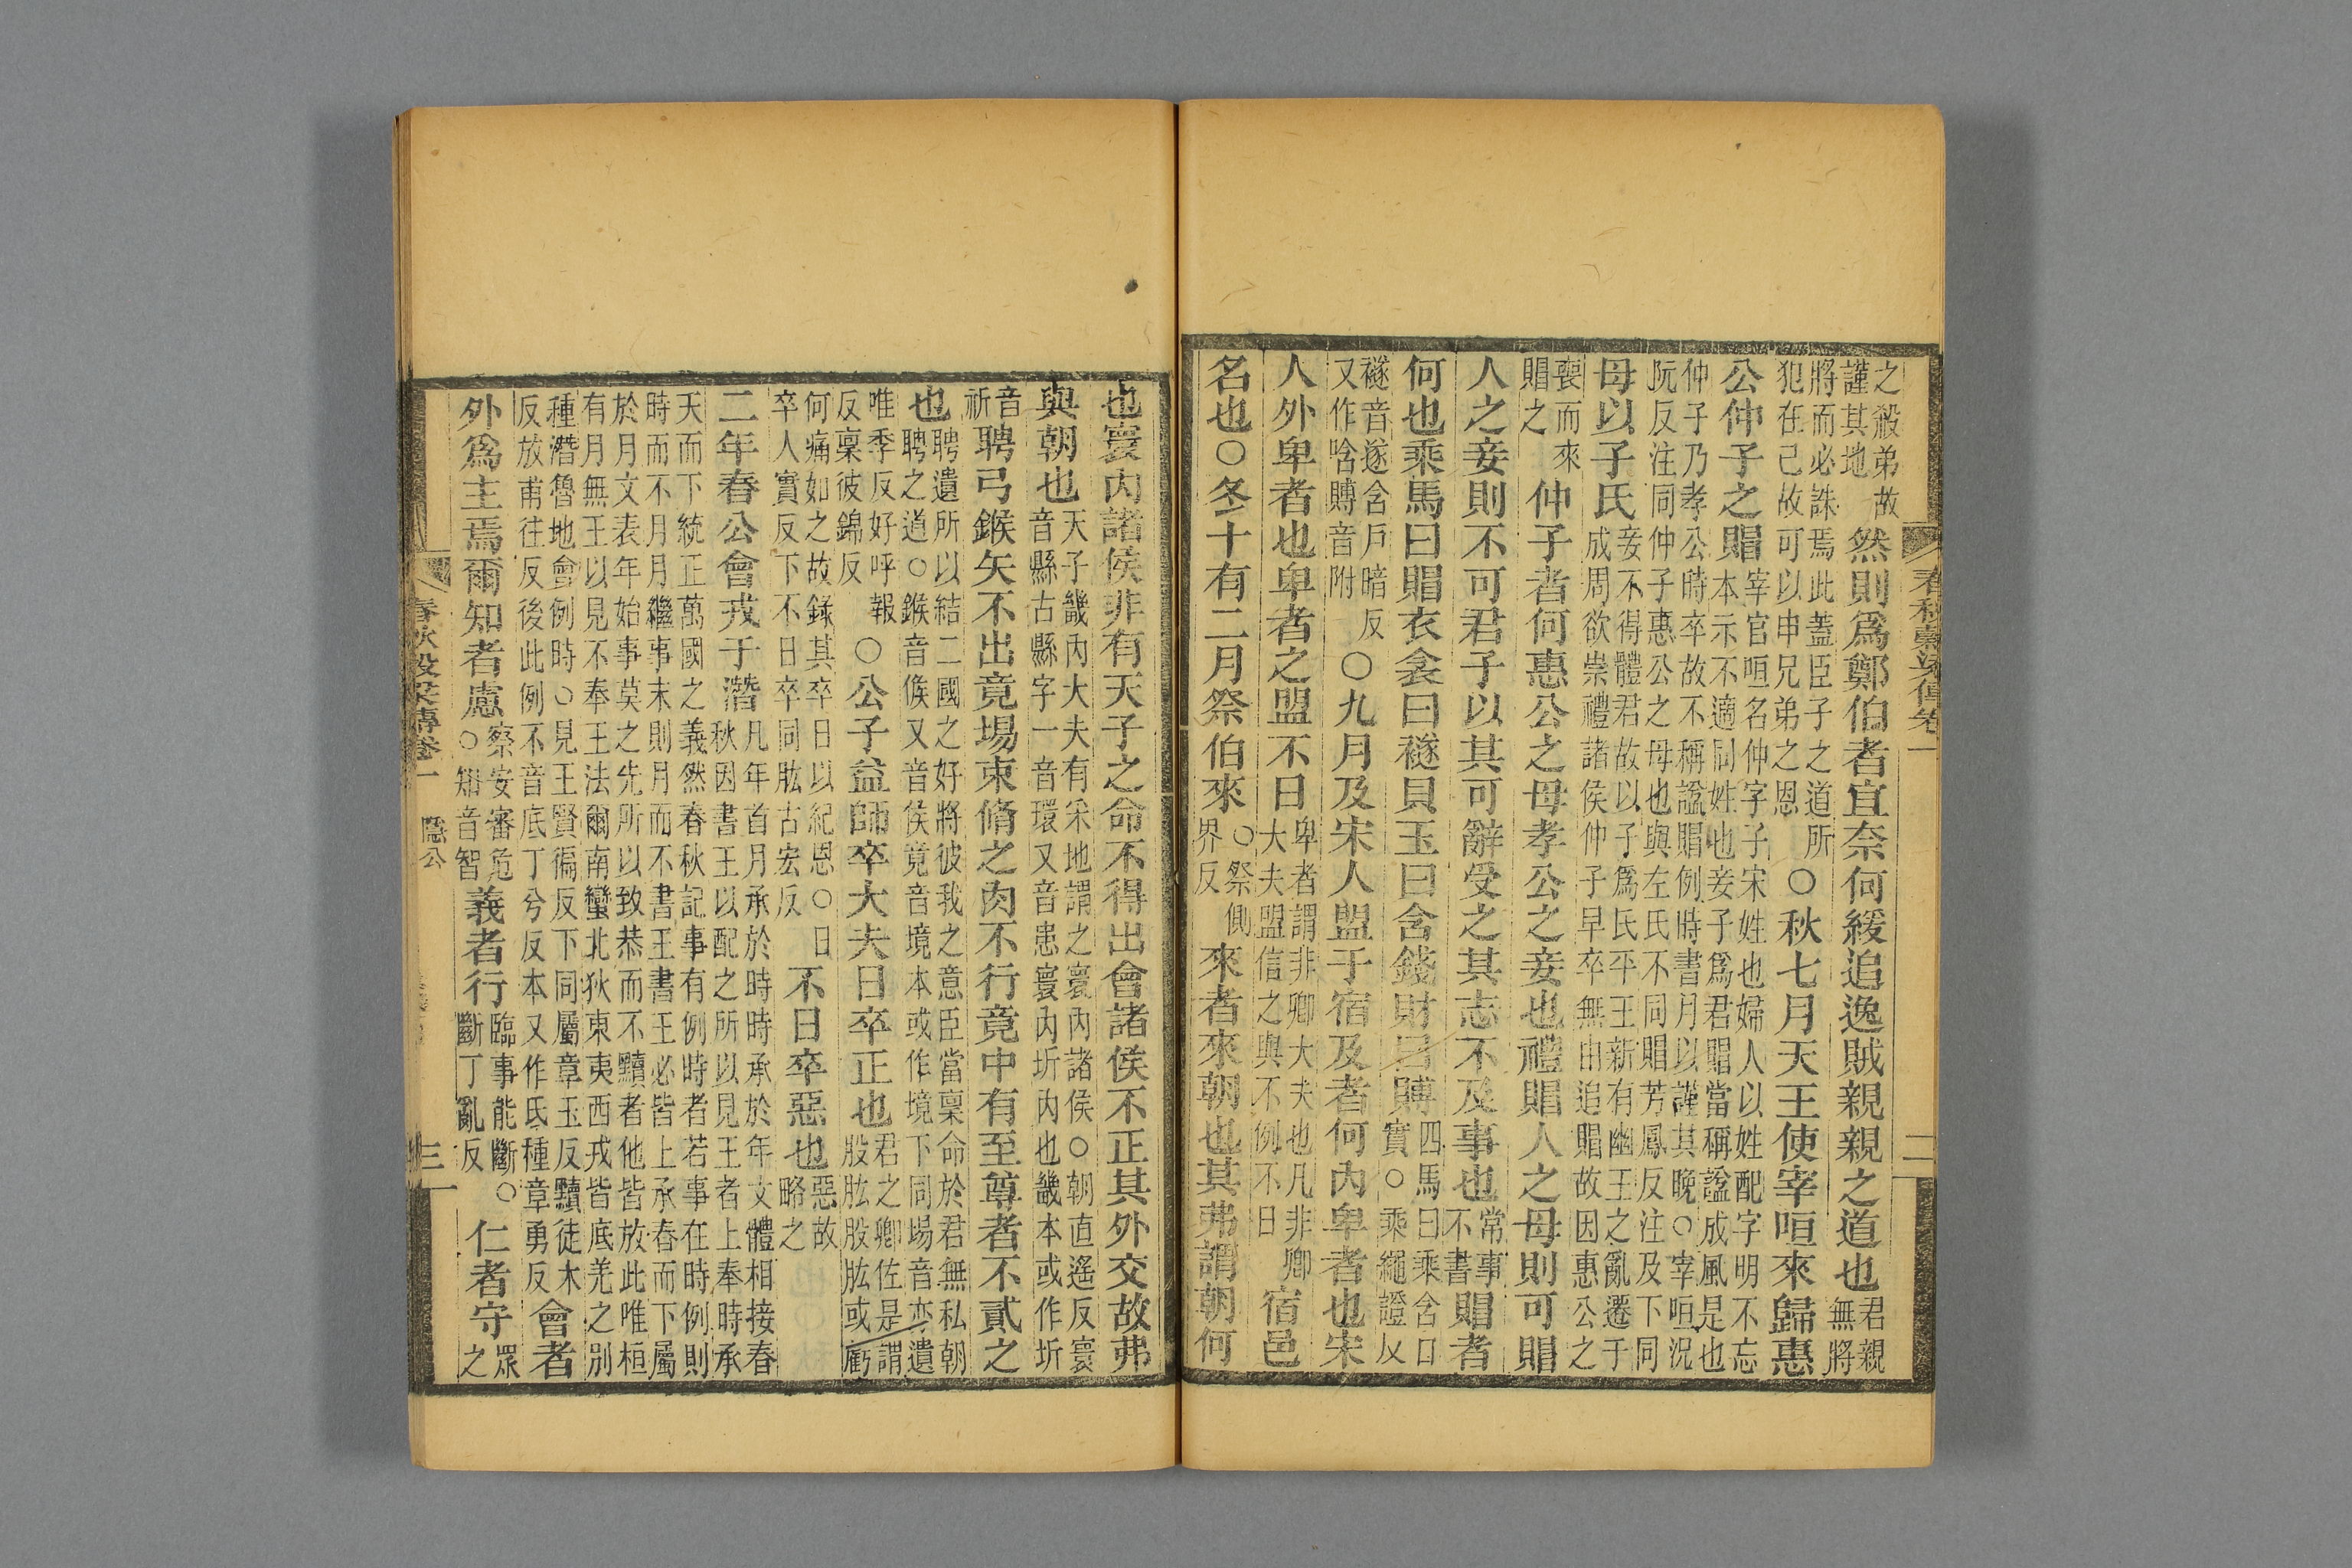 春秋穀梁傳卷一　二
之殺弟故
謹其地
然則爲鄭伯者宜奈何緩追逸賊親親之道也
君親
無將
將而必誅焉此蓋臣子之道所
犯在己故可以申兄弟之恩
○秋七月天王使宰咺來歸惠
公仲子之賵
宰官咺名仲字子宋姓也婦人以姓配字明不忘
本示不適同姓也妾子爲君賵當稱諡成風是也
仲子乃孝公時卒故不稱諡賵例時書月以謹其晚○宰咺況
阮反注同仲子惠公之母也與左氏不同賵芳鳳反注及下同
母以子氏
妾不得體君故以子爲氏平王新有幽王之亂遷于
成周欲崇禮諸侯仲子早卒無由追賵故因惠公之
喪而來
賵之
仲子者何惠公之母孝公之妾也禮賵人之母則可賵
人之妾則不可君子以其可辭受之其志不及事也
常事
不書
賵者
何也乘馬曰賵衣衾曰襚貝玉曰含錢財曰賻
四馬曰乘含口
實○乘繩證反
襚音遂含戶暗反
又作唅賻音附
○九月及宋人盟于宿及者何內卑者也宋
人外卑者也卑者之盟不日
卑者謂非卿大夫也凡非卿
大夫盟信之與不例不日
宿邑
名也○冬十有二月祭伯來
○祭側
界反
來者來朝也其弗謂朝何
也寰內諸侯非有天子之命不得出會諸侯不正其外交故弗
與朝也
天子畿內大夫有采地謂之寰內諸侯○朝直遙反寰
音縣古縣字一音環又音患寰內圻內也畿本或作圻
音
祈
聘弓鍭矢不出竟場束脩之肉不行竟中有至尊者不貳之
也
聘遺所以結二國之好將彼我之意臣當稟命於君無私朝
聘之道○鍭音候又音侯竟音境本或作境下同場音亦遺
唯季反好呼報
反稟彼錦反
○公子益師卒大夫日卒正也
君之卿佐是謂
股肱股肱或虧
何痛如之故錄其卒日以紀恩○日
卒人實反下不日卒同肱古宏反
不日卒惡也
惡故
略之
二年春公會戎于潛
凡年首月承於時時承於年文體相接春
秋因書王以配之所以見王者上奉時承
天而下統正萬國之義然春秋記事有例時者若事在時例則
時而不月月繼事末則月而不書王書王必皆上承春而下屬
於月文表年始事莫之先所以致恭而不黷者他皆放此唯桓
有月無王以見不奉王法爾南蠻北狄東夷西戎皆底羌之別
種潛魯地會例時○見王賢徧反下同屬章玉反黷徒木
反放甫往反後此例不音底丁兮反本又作氐種章勇反
會者
外爲主焉爾知者慮
察安審危
○知音智
義者行
臨事能斷○
斷丁亂反
仁者守
眾
之
春秋穀梁傳卷一　隱公　三